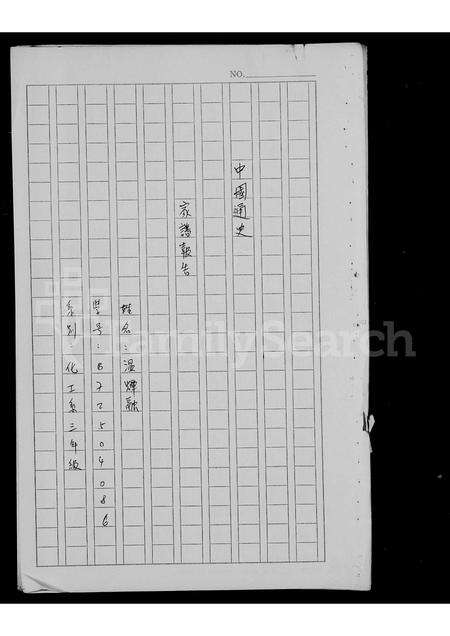 NO.
中國通史
家譜報告
姓名:溫煇
學号:B72504086
系別:化工系三年級
FamilySearch